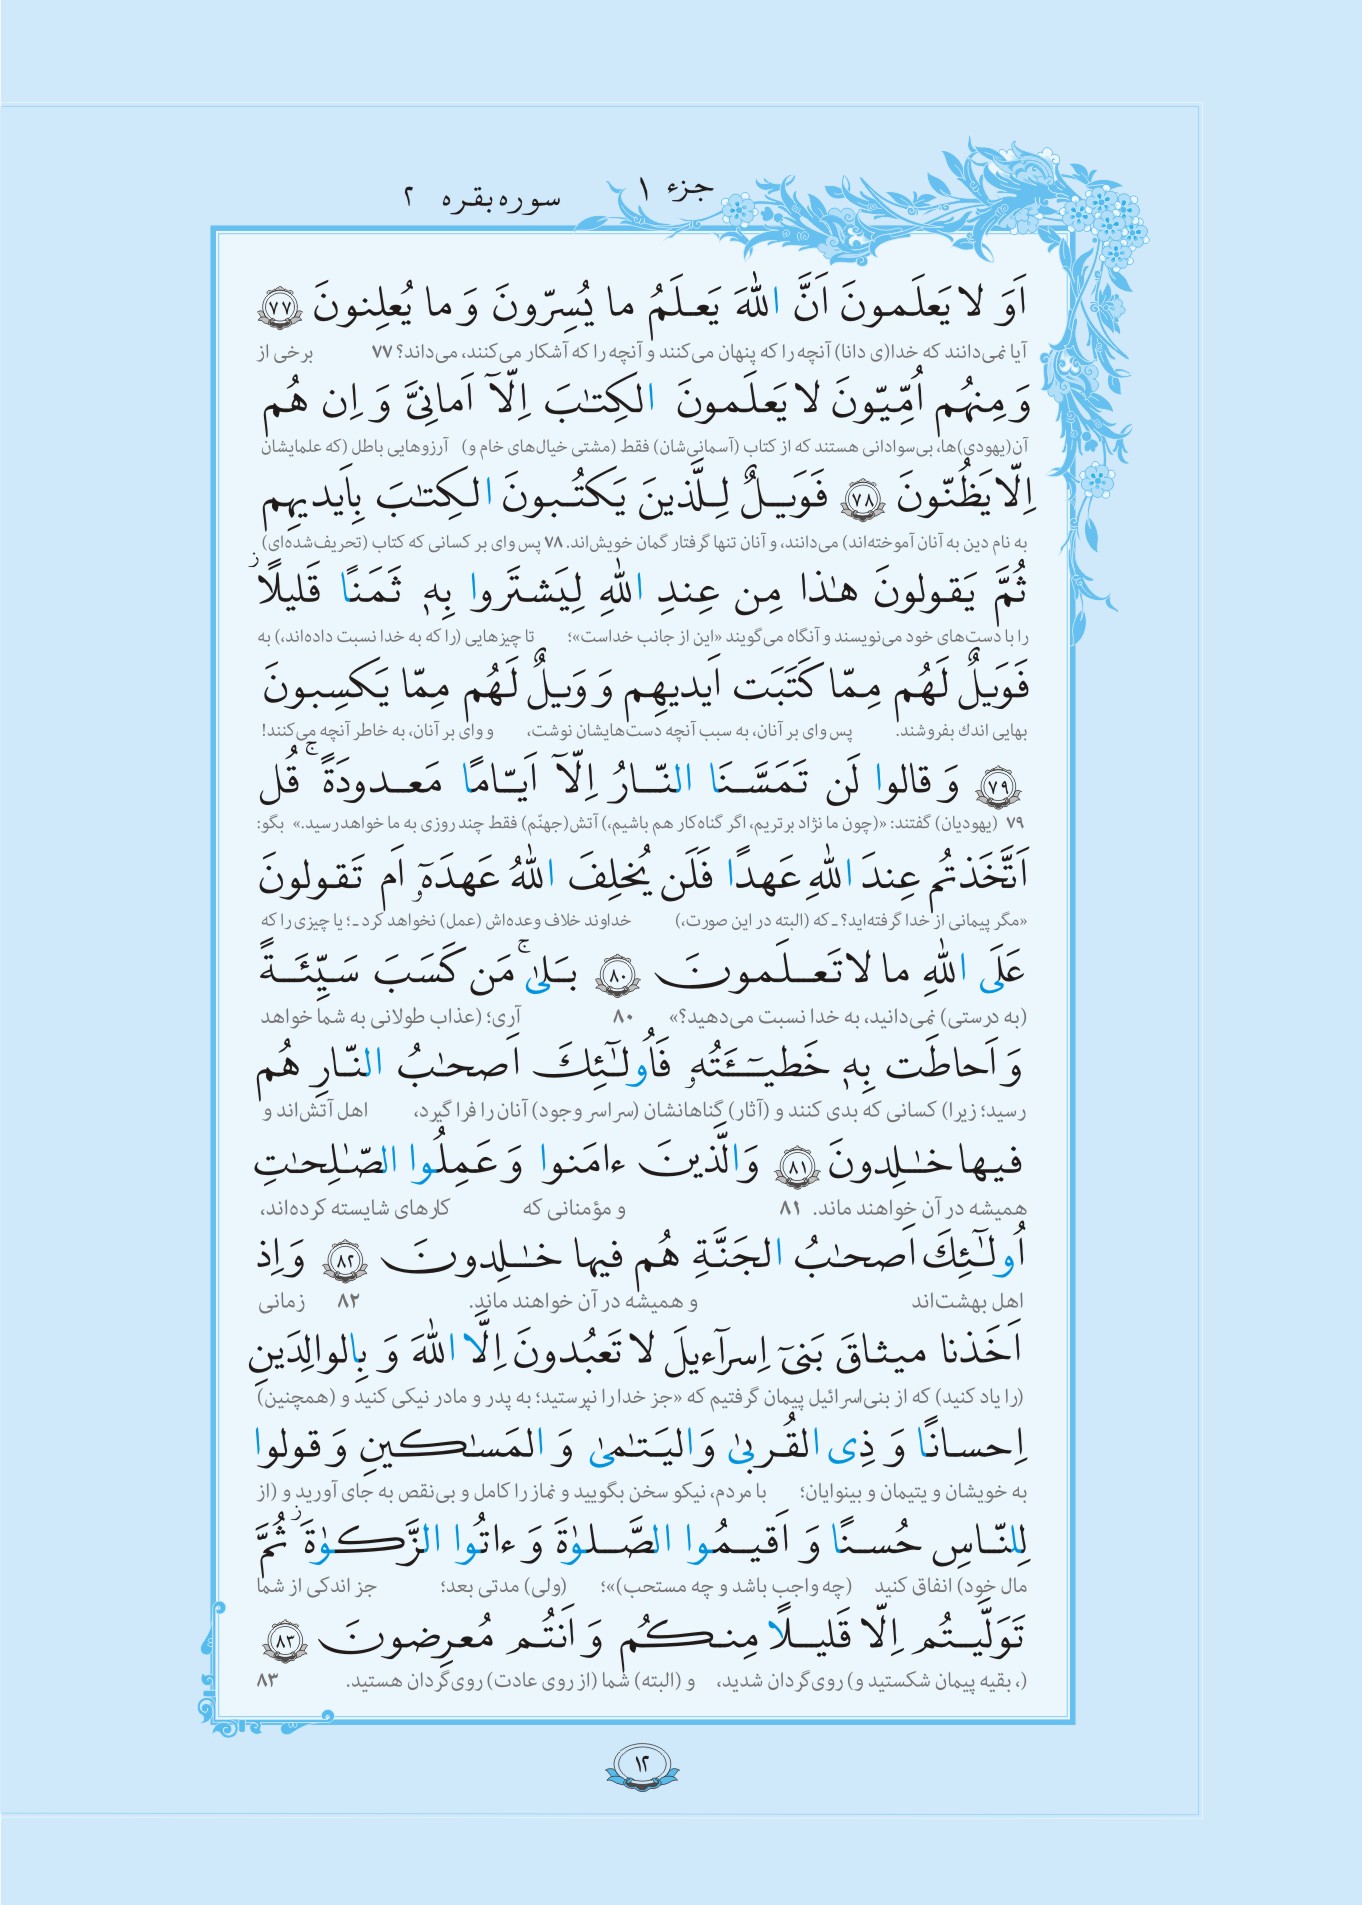 جزء ۱ سوره بقره ۲
اَوَ لا یَعلَمونَ اَنَّ اللّٰهَ یَعلَمُ ما یُسِرّونَ وَ ما یُعلِنونَ ﴿۷۷﴾
آیا نمی‌دانند که خدا(ی دانا) آنچه را که پنهان می‌کنند و آنچه را که آشکار می‌کنند، می‌داند؟ ۷۷ برخی از
وَ مِنهُم اُمِّیّونَ لا یَعلَمونَ الکِتٰبَ اِلّآ اَمانِیَّ وَ اِن هُم
آن(یهودی)ها، بی‌سوادانی هستند که از کتاب (آسمانی‌شان) فقط (مشتی خیال‌های خام و) آرزوهایی باطل (که علمایشان
اِلّا یَظُنّونَ ﴿۷۸﴾ فَوَیلٌ لِلَّذینَ یَکتُبونَ الکِتٰبَ بِاَیدیهِم
به نام دین به آنان آموخته‌اند) می‌دانند، و آنان تنها گرفتار گمان خویش‌اند. ۷۸ پس وای بر کسانی که کتاب (تحریف‌شده‌ای)
ثُمَّ یَقولونَ هٰذا مِن عِندِ اللّٰهِ لِیَشتَروا بِهٖ ثَمَنًا قَلیلًا ز
را با دست‌های خود می‌نویسند و آنگاه می‌گویند «این از جانب خداست»؛ تا چیزهایی (را که به خدا نسبت داده‌اند،) به
فَوَیلٌ لَهُم مِمّا کَتَبَت اَیدیهِم وَ وَیلٌ لَهُم مِمّا یَکسِبونَ
بهایی اندك بفروشند. پس وای بر آنان، به سبب آنچه دست‌هایشان نوشت، و وای بر آنان، به خاطر آنچه می‌کنند!
﴿۷۹﴾ وَ قالوا لَن تَمَسَّنَا النّارُ اِلّآ اَیّامًا مَعدودَةً ۚ قُل
۷۹ (یهودیان) گفتند: «(چون ما نژاد برتریم، اگر گناه‌کار هم باشیم،) آتش(جهنّم) فقط چند روزی به ما خواهد رسید.» بگو:
اَتَّخَذتُم عِندَ اللّٰهِ عَهدًا فَلَن یُخلِفَ اللّٰهُ عَهدَهٗٓ اَم تَقولونَ
«مگر پیمانی از خدا گرفته‌اید؟ ـ که (البته در این صورت،) خداوند خلاف وعده‌اش (عمل) نخواهد کرد ـ ؛ یا چیزی را که
عَلَی اللّٰهِ ما لا تَعلَمونَ ﴿۸۰﴾ بَلیٰ ۚ مَن کَسَبَ سَیِّئَةً
(به درستی) نمی‌دانید، به خدا نسبت می‌دهید؟» ۸۰ آری؛ (عذاب طولانی به شما خواهد
وَ اَحاطَت بِهٖ خَطیٓـَٔتُهٗ فَاُولٰٓئِكَ اَصحٰبُ النّارِ هُم
رسید؛ زیرا) کسانی که بدی کنند و (آثار) گناهانشان (سراسر وجود) آنان را فرا گیرد، اهل آتش‌اند و
فیها خٰلِدونَ ﴿۸۱﴾ وَالَّذینَ ءامَنوا وَ عَمِلُوا الصّٰلِحٰتِ
همیشه در آن خواهند ماند. ۸۱ و مؤمنانی که کارهای شایسته کرده‌اند،
اُولٰٓئِكَ اَصحٰبُ الجَنَّةِ هُم فیها خٰلِدونَ ﴿۸۲﴾ وَ اِذ
اهل بهشت‌اند و همیشه در آن خواهند ماند. ۸۲ زمانی
اَخَذنا میثاقَ بَنیٓ اِسرآءیلَ لا تَعبُدونَ اِلَّا اللّٰهَ وَ بِالوالِدَینِ
(را یاد کنید) که از بنی‌اسرائیل پیمان گرفتیم که «جز خدا را نپرستید؛ به پدر و مادر نیکی کنید و (همچنین)
اِحسانًا وَ ذِی القُربیٰ وَ الیَتٰمیٰ وَ المَسٰکینِ وَ قولوا
به خویشان و یتیمان و بینوایان؛ با مردم، نیکو سخن بگویید و نماز را کامل و بی‌نقص به جای آورید و (از
لِلنّاسِ حُسنًا وَ اَقیمُوا الصَّلوٰةَ وَ ءاتُوا الزَّکوٰةَ ز ثُمَّ
مال خود) انفاق کنید (چه واجب باشد و چه مستحب)»؛ (ولی) مدتی بعد؛ جز اندکی از شما
تَوَلَّیتُم اِلّا قَلیلًا مِنکُم وَ اَنتُم مُعرِضونَ ﴿۸۳﴾
(، بقیه پیمان شکستید و) روی‌گردان شدید، و (البته) شما (از روی عادت) روی‌گردان هستید. ۸۳
۱۲